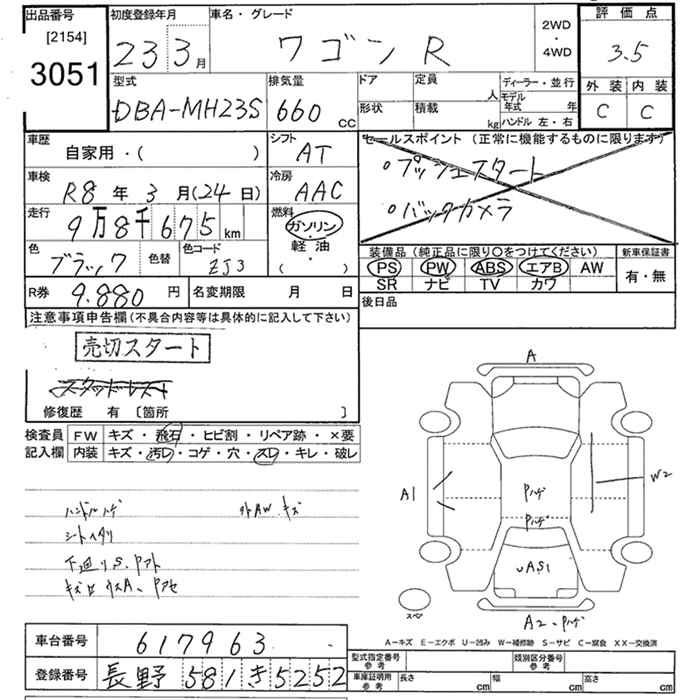 出品番号 初度登録年月 車名・グレード 2WD・4WD 評価点
[2154] 3051 23 3月 ワゴンR 3.5
型式 排気量 ドア 定員 人 ディーラー・並行 外装 内装
DBA-MH23S 660cc 形状 積載 kg モデル年式 年 ハンドル 左・右 C C
車歴 シフト セールスポイント (正常に機能するものに限ります)
自家用・( ) AT ○プッシュスタート
車検 冷房
R8年3月(24日) AAC ○バックカメラ
走行 燃料
9万8千675km ガソリン・軽油・( )
色 色替 色コード 装備品 (純正品に限り○をつけてください) 新車保証書
ブラック ZJ3 PS PW ABS エアB AW 有・無
SR ナビ TV カワ
R券 9.880円 名変期限 月 日 後日品
注意事項申告欄 (不具合内容等は具体的に記入して下さい)
売切スタート
スタッドレス
修復歴 有 [箇所 ]
検査員記入欄 FW キズ・飛石・ヒビ割・リペア跡・×要
内装 キズ・汚レ・コゲ・穴・スレ・キレ・破レ
ハンドルハゲ 外AWキズ
シートヘタリ
下廻りS.Pアト
A
A1
W2
Pハゲ
Pハゲ
AS1
スペア
A2-Pハゲ
A-キズ E-エクボ U-凹み W-補修跡 S-サビ C-腐食 XX-交換済
車台番号 617963
登録番号 長野 581 き 5252
型式指定番号 参考 類別区分番号 参考
車庫証明用 参考 長さ cm 幅 cm 高さ cm